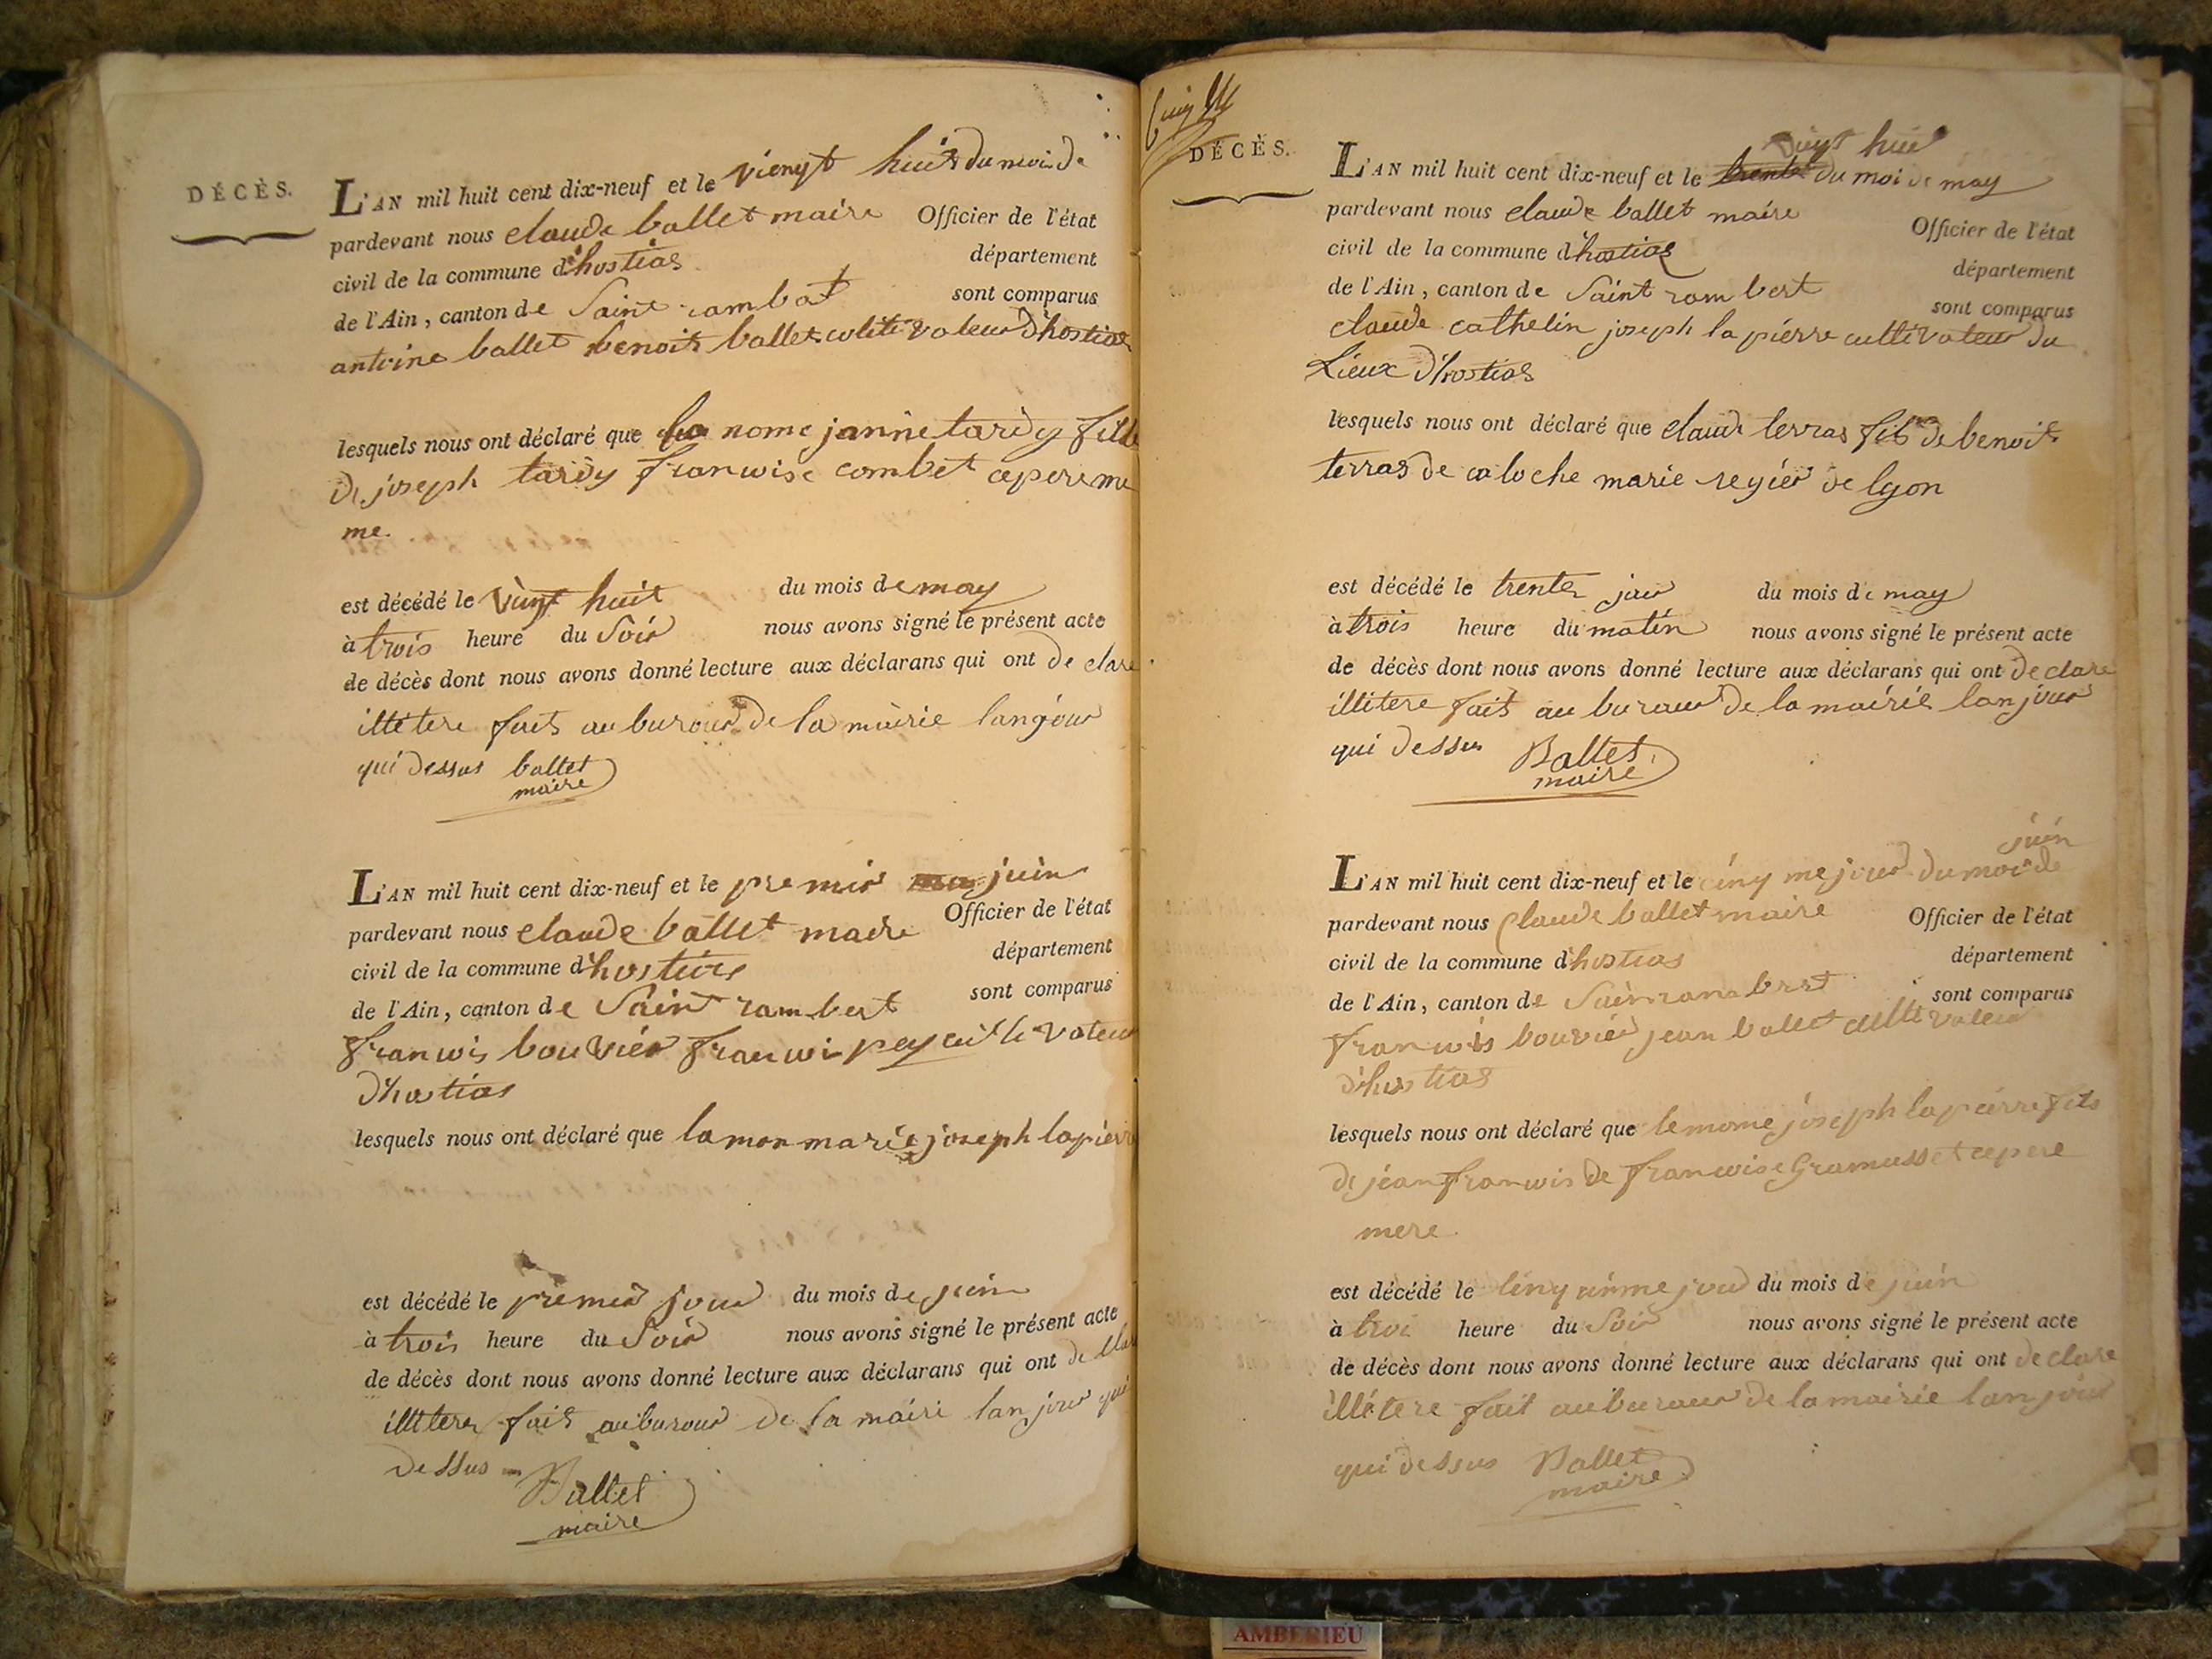 DÉCÈS.
L'AN mil huit cent dix-neuf et le viengt huit du moi de
pardevant nous claude ballet maire Officier de l'état
civil de la commune d'hostias département
de l'Ain, canton de Saint rambat sont comparus
antoine ballet benoit ballet coltivateur d'hostias
lesquels nous ont déclaré que la nome janne tardy fille
de joseph tardy franwise combet ce pere me
me
est décédé le vingt huit du mois de may
à trois heure du Soir nous avons signé le présent acte
de décès dont nous avons donné lecture aux déclarans qui ont de clare
illétere fait au buraur de la mairie lan jour
qui dessus ballet
maire
L'AN mil huit cent dix-neuf et le premir juin
pardevant nous claude ballet maire Officier de l'état
civil de la commune d'hostias département
de l'Ain, canton de Saint rambert sont comparus
franwis bouvier franwi pey cultivateur
d'hostias
lesquels nous ont déclaré que la mon marie joseph lapierre
est décédé le premier jour du mois de juin
à trois heure du Soir nous avons signé le présent acte
de décès dont nous avons donné lecture aux déclarans qui ont
illitere fait au buraur de la mairi lan jour qui
dessus Ballet
maire
DÉCÈS.
vingt huit
L'AN mil huit cent dix-neuf et le trente du moi de may
pardevant nous claude ballet maire Officier de l'état
civil de la commune d'hostias département
de l'Ain, canton de Saint rambert sont comparus
claude cathelin joseph la pierre cultivateur du
Lieux d'hostias
lesquels nous ont déclaré que claude terras fils de benoit
terras de caloche marie regier de lyon
est décédé le trente jour du mois de may
à trois heure du matin nous avons signé le présent acte
de décès dont nous avons donné lecture aux déclarans qui ont declare
illitere fait au buraur de la mairie lan jour
qui dessus Ballet
maire
juin
L'AN mil huit cent dix-neuf et le cinq me jour du moi de
pardevant nous Claude ballet maire Officier de l'état
civil de la commune d'hostias département
de l'Ain, canton de sont comparus
franwis bouvier jean ballet cultivateur
d'hostias
lesquels nous ont déclaré que le mome joseph lapierre fils
de jean franwis de franwise Gramusset ce pere
mere
est décédé le jour du mois de juin
à troi heure du Soir nous avons signé le présent acte
de décès dont nous avons donné lecture aux déclarans qui ont declare
illétere fait au buraur de la mairie lan jour
qui dessus Ballet
maire
AMBERIEU